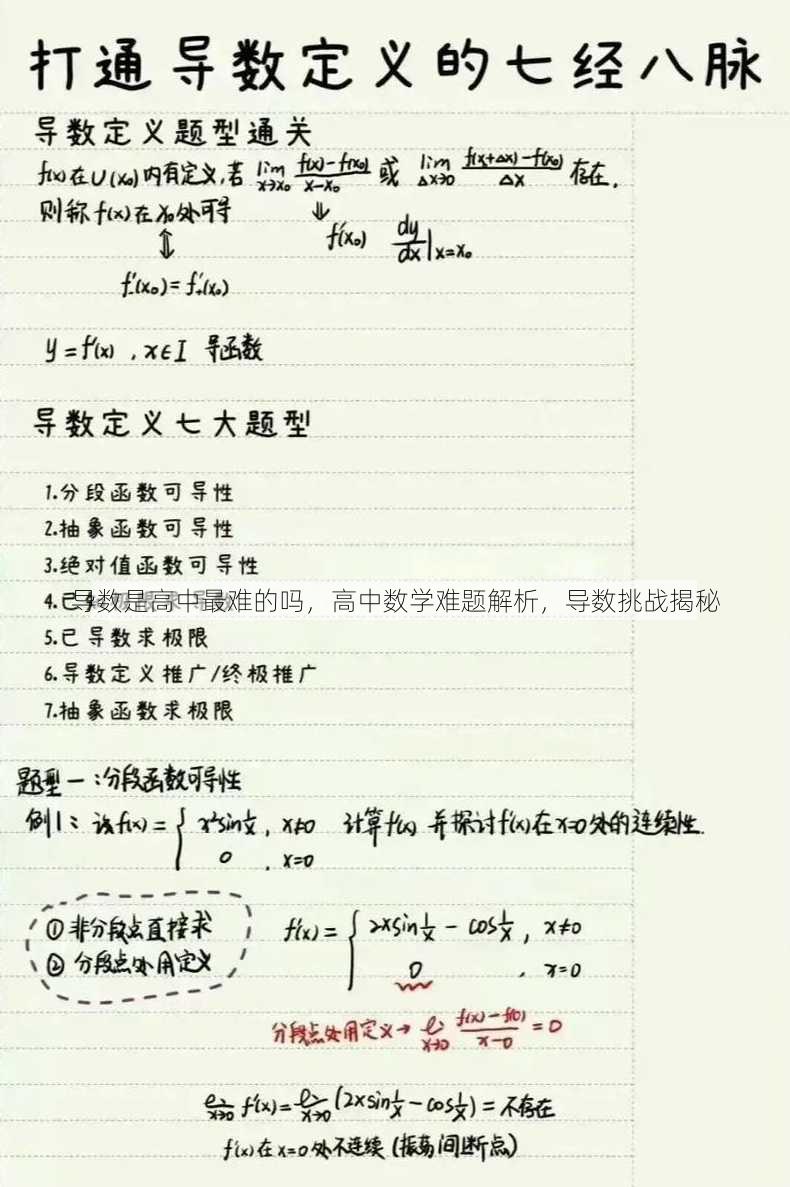 打通导数定义的七经八脉
导数定义题型通关
f(x)在U(x₀)内有定义,若 lim x→x₀ (f(x)-f(x₀))/(x-x₀) 或 lim Δx→0 (f(x+Δx)-f(x₀))/Δx 存在,
则称f(x)在x₀处可导 ⇓
⇕ f'(x₀) dy/dx|x=x₀
f'₋(x₀)=f'₊(x₀)
y=f'(x),x∈I 导函数
导数定义七大题型
1.分段函数可导性
2.抽象函数可导性
3.绝对值函数可导性
4.已
导数是高中最难的吗，高中数学难题解析，导数挑战揭秘
5.已导数求极限
6.导数定义推广/终极推广
7.抽象函数求极限
题型一:分段函数可导性
例1: 设f(x)={ x²sin1/x, x≠0 计算f'(x) 并探讨f'(x)在x=0处的连续性.
0, x=0
①非分段点直接求
②分段点处用定义
f'(x)={ 2xsin1/x - cos1/x, x≠0
0, x=0
分段点处用定义→ lim x→0 (f(x)-f(0))/(x-0) =0
lim x→0 f'(x)=lim x→0 (2xsin1/x-cos1/x)=不存在
f'(x)在x=0处不连续(振荡间断点)